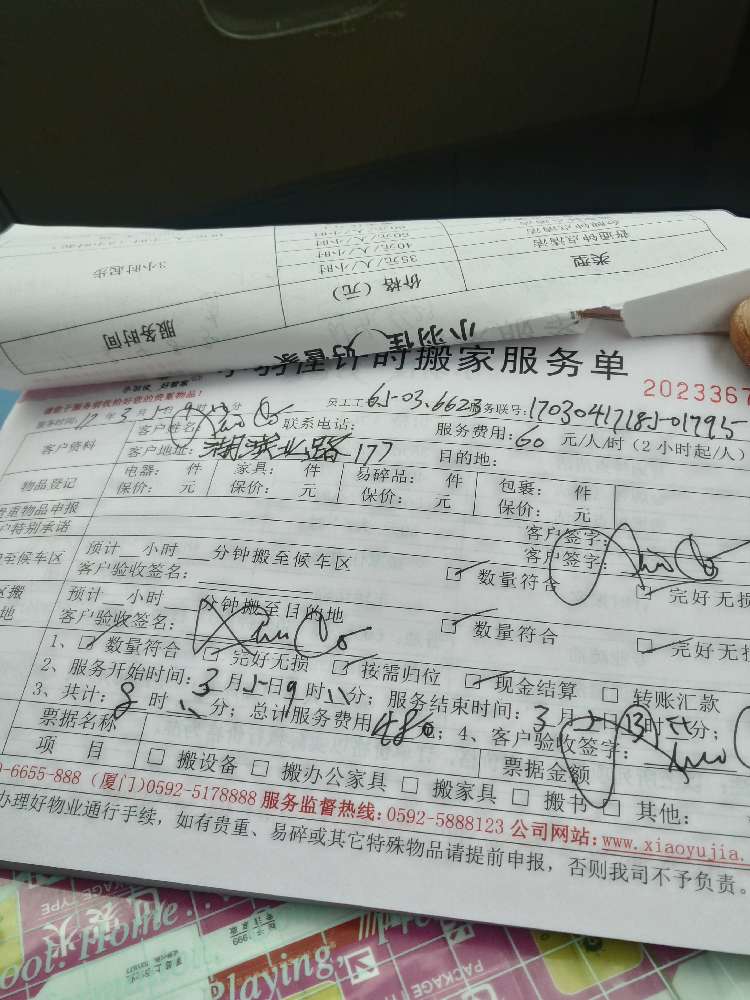 服务时间
价格（元）
类型
3小时起步
35元/人/小时
40元/人/小时
普通钟点清洁
小羽佳
计时搬家服务单
2023367
请勿于服务前收拾好您的贵重物品！
服务时间：17年3月5日9时 分
员工工号：65-03.6623
服务联号：170304171825-01795
客户资料
客户姓名：
联系电话：
服务费用：60 元/人/时（2小时起/人）
客户地址：湖滨北路177
目的地：
物品登记
电器： 件
家具： 件
易碎品： 件
包裹： 件
保价： 元
保价： 元
保价： 元
保价： 元
贵重物品申报
客户签字：
户特别承诺
客户签字：
至候车区
预计 小时 分钟搬至候车区
客户验收签名：
数量符合
完好无损
预计 小时 分钟搬至目的地
客户验收签名：
数量符合
完好无损
1、 数量符合 完好无损 按需归位 现金结算 转账汇款
2、服务开始时间：3月5日9时 分；服务结束时间：3月5日13时 分；
3、共计：8时 分；总计服务费用480；4、客户验收签字：
票据名称
票据金额
项 目
搬设备 搬办公家具 搬家具 搬书 其他：
0-6655-888（厦门）0592-5178888 服务监督热线：0592-5888123 公司网站：www.xiaoyujia.
办理好物业通行手续，如有贵重、易碎或其它特殊物品请提前申报，否则我司不予负责。
Home
playing
PACKAGE TYPE